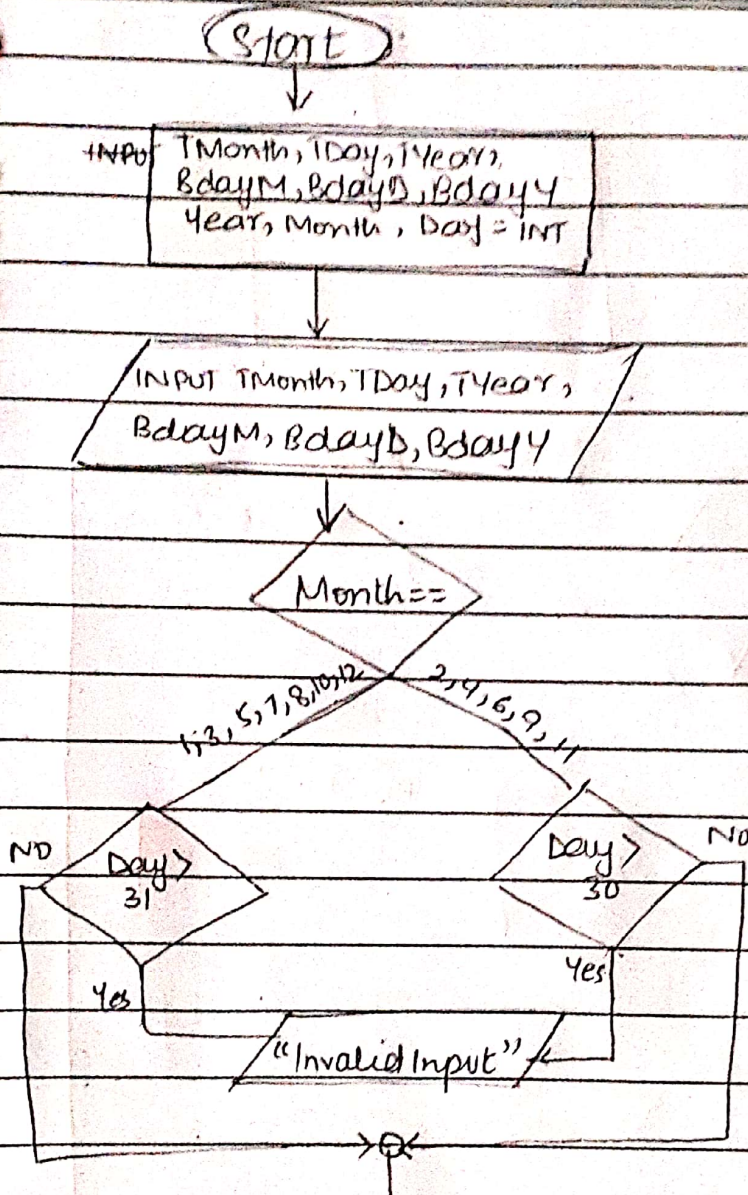 Start
INPUT TMonth, TDay, TYear,
BdayM, BdayD, BdayY
Year, Month, Day = INT
INPUT TMonth, TDay, TYear,
BdayM, BdayD, BdayY
Month==
1,3,5,7,8,10,12
2,4,6,9,11
NO
Day>
31
Day>
30
No
Yes
Yes
"Invalid Input"